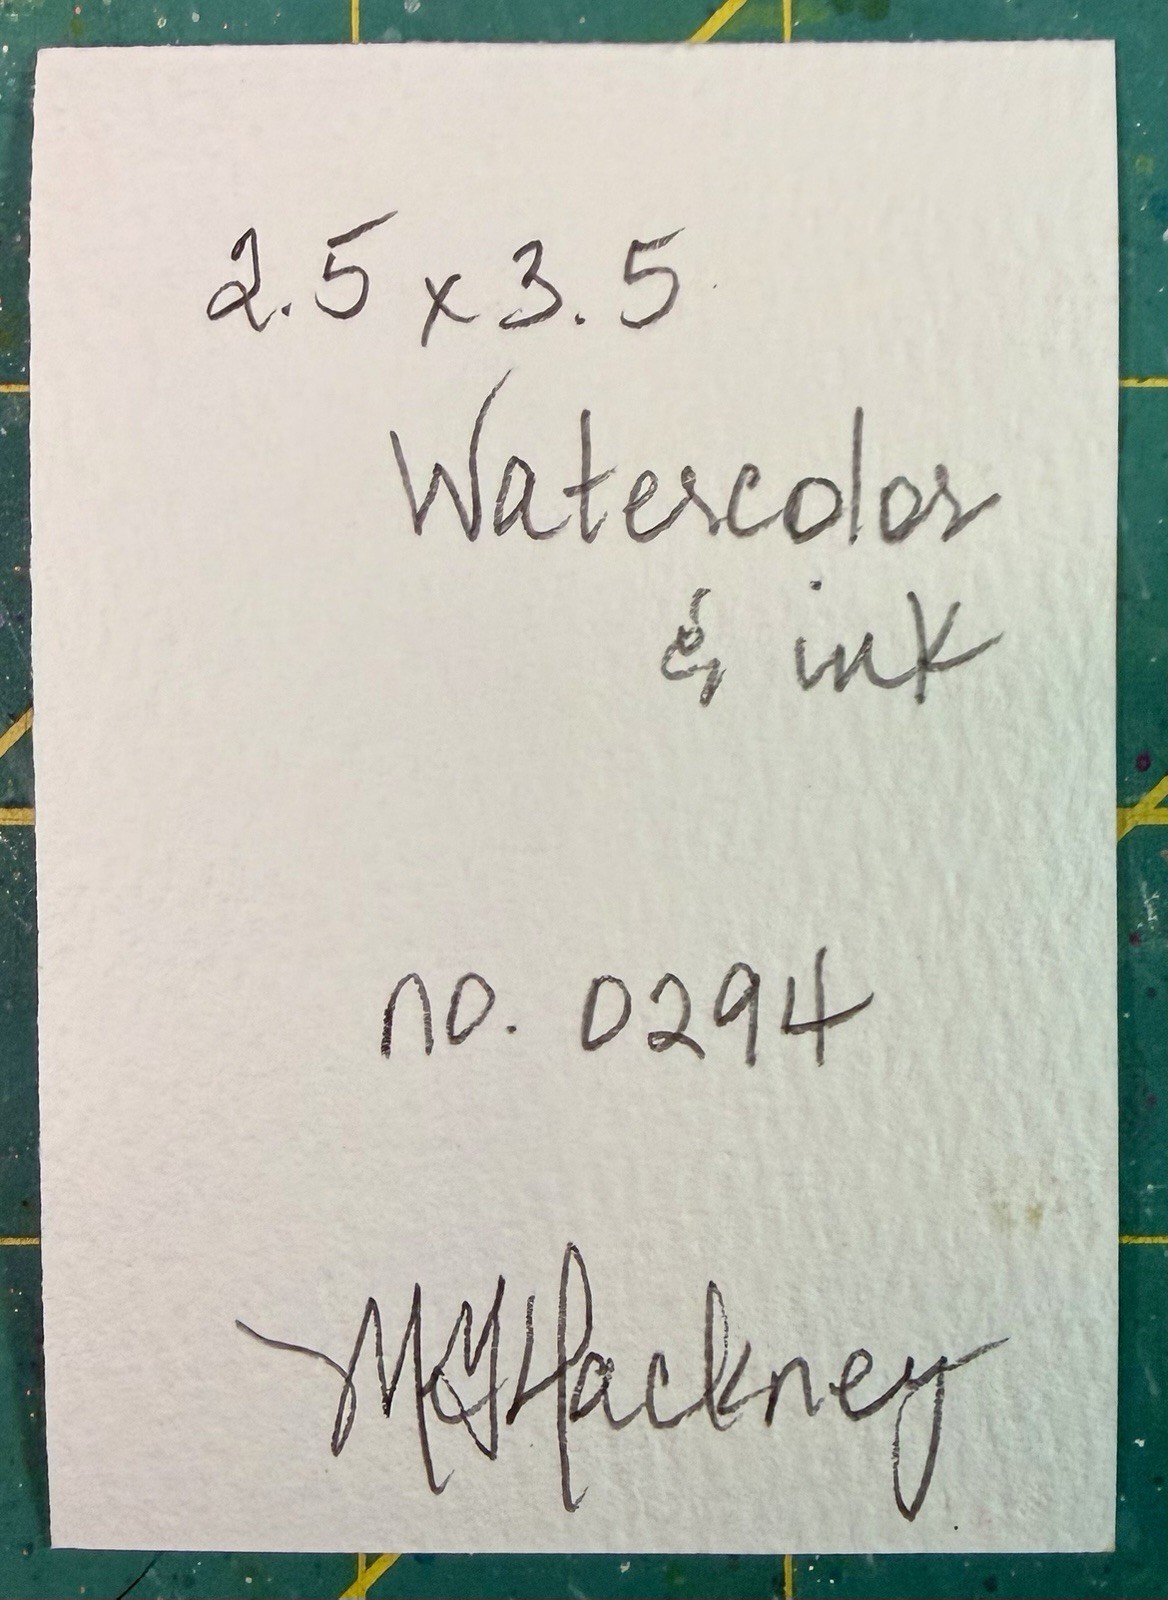 2.5 x 3.5
Watercolor
& ink
no. 0294
Hackney